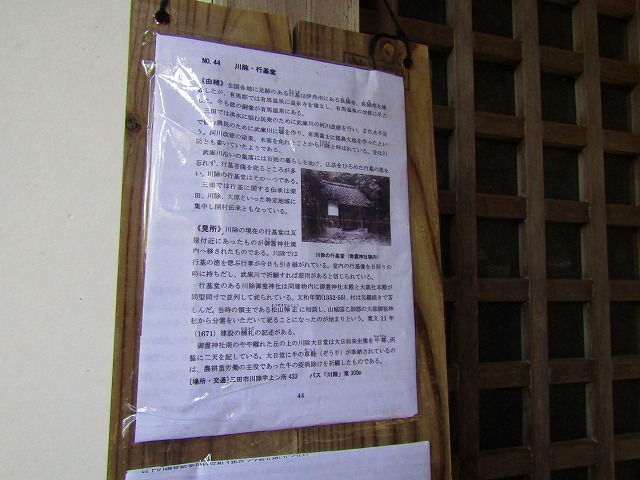 NO.44 川除・行基堂
《由緒》全国各地に足跡のある行基は伊丹市にある昆陽寺、昆陽池を造
三田では洪水に悩む民衆のために武庫川の河川改修を行い、また水不足
う。河川改修の結果、水害を免れたことから川除と呼ばれている。昔は川
防とも書いていたようである。
武庫川沿いの集落には百姓の暮らしを助け、仏法をひろめた行基の恩を
忘れず、行基菩薩を祀るところが多
い。川除の行基堂はその一つである。
三田では行基に関する伝承は深
田、川除、大原といった特定地域に
集中し開村伝承ともなっている。
《見所》川除の現在の行基堂は瓦
屋付近にあったものが御霊神社境
内へ移されたものである。川除では
川除の行基堂(御霊神社境内)
行基の徳を偲ぶ行事が今日も引き継がれている。堂内の行基像を日照りの
時に持ちだし、武庫川で祈願すれば慈雨があると信じられている。
行基堂のある川除御霊神社は同建物内に御霊神社本殿と大歳社本殿が
同型同寸で並列して祀られている。文和年間(1352-55)、村は災難続きで苦
しんだ。当時の領主である松山弾正に相談し、山城国乙訓郡の大歳御祖神
社から分霊をいただいて祀ることになったのが始まりという。寛文11年
(1671)建設の棟札の記述がある。
御霊神社南のやや離れた丘の上の川除大日堂は大日如来坐像を中尊、両
脇に二天を配している。大日堂に牛の草鞋(ぞうり)が奉納されているの
は、農耕重労働の主役であった牛の疫病除けを祈願したものである。
[場所・交通]三田市川除字上ン所433 バス「川除」東300m
44